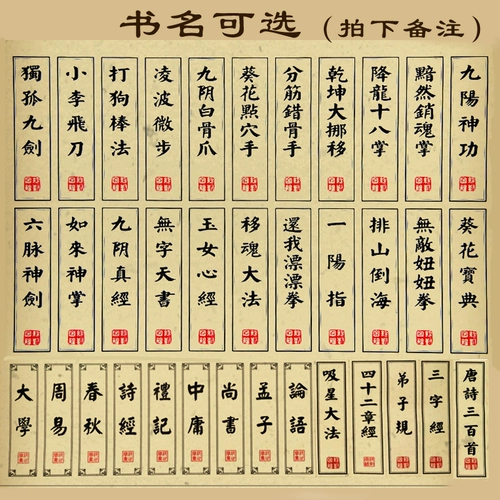 书名可选（拍下备注）
獨孤九劍
小李飛刀
打狗棒法
凌波微步
九阴白骨爪
葵花點穴手
分筋錯骨手
乾坤大挪移
降龍十八掌
黯然銷魂掌
九陽神功
六脉神劍
如來神掌
九阴真經
無字天書
玉女心經
移魂大法
還我漂漂拳
一陽指
排山倒海
無敵妞妞拳
葵花寶典
大學
周易
春秋
詩經
禮記
中庸
尚書
孟子
論語
吸星大法
四十二章經
弟子規
三字經
唐詩三百首